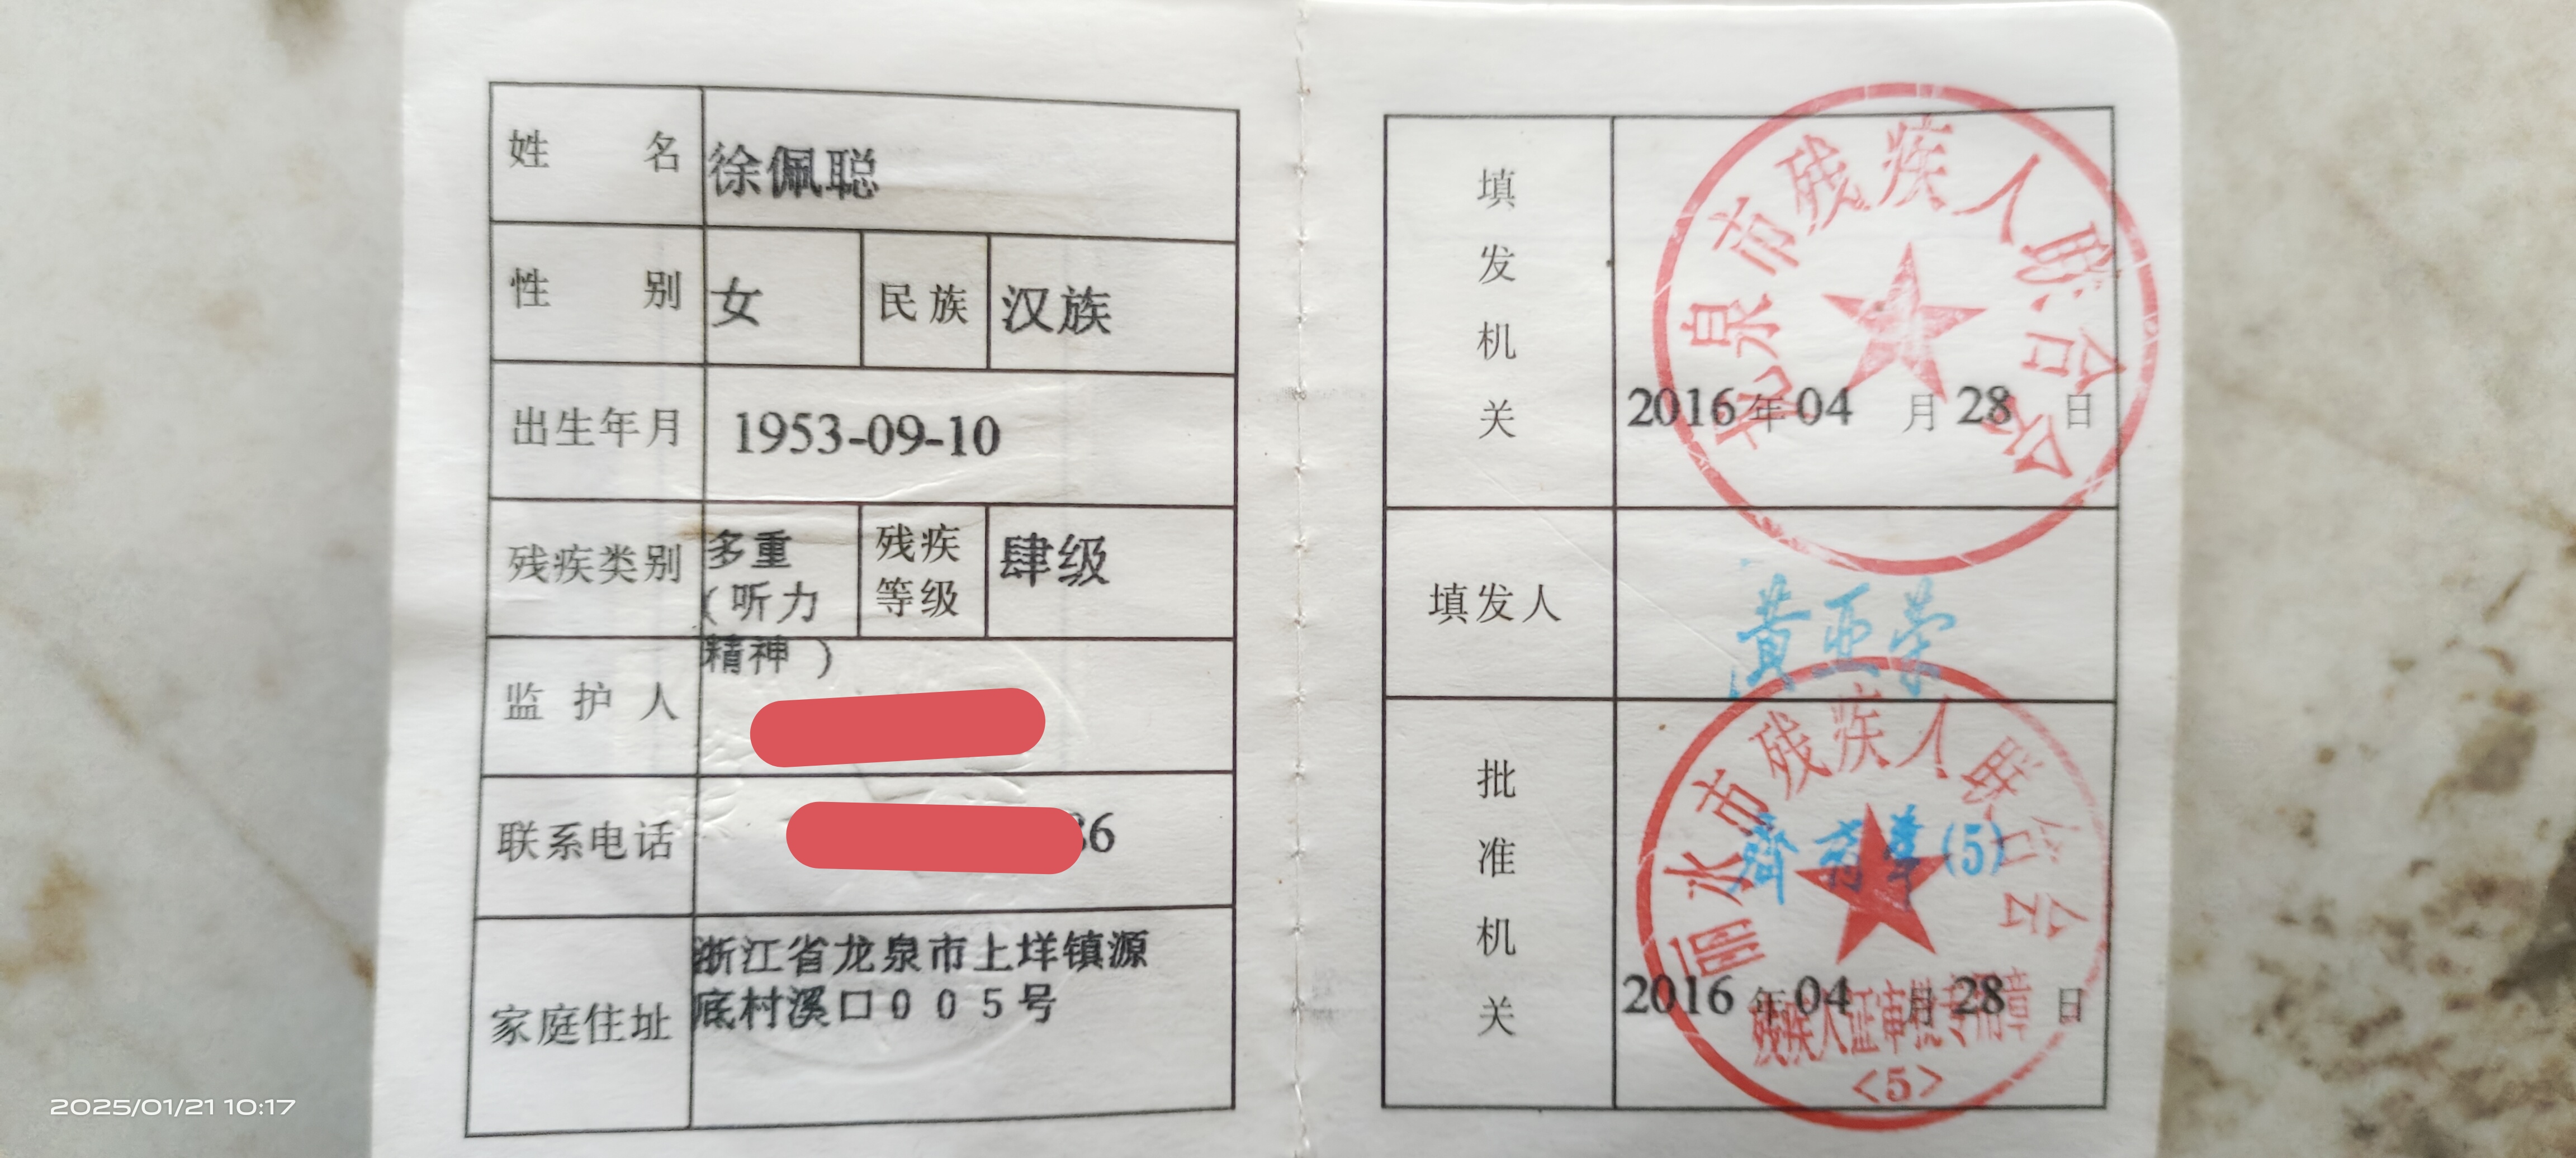 姓 名 徐佩聪
性 别 女 民族 汉族
出生年月 1953-09-10
残疾类别 多重
(听力
精神)
残疾
等级 肆级
监 护 人
联系电话 86
家庭住址 浙江省龙泉市上垟镇源
底村溪口005号
填发机关
龙泉市残疾人联合会
2016年04月28日
填发人 黄亚荣
批准机关
丽水市残疾人联合会
(5)
2016年04月28日
残疾人证审批专用章
<5>
2025/01/21 10:17